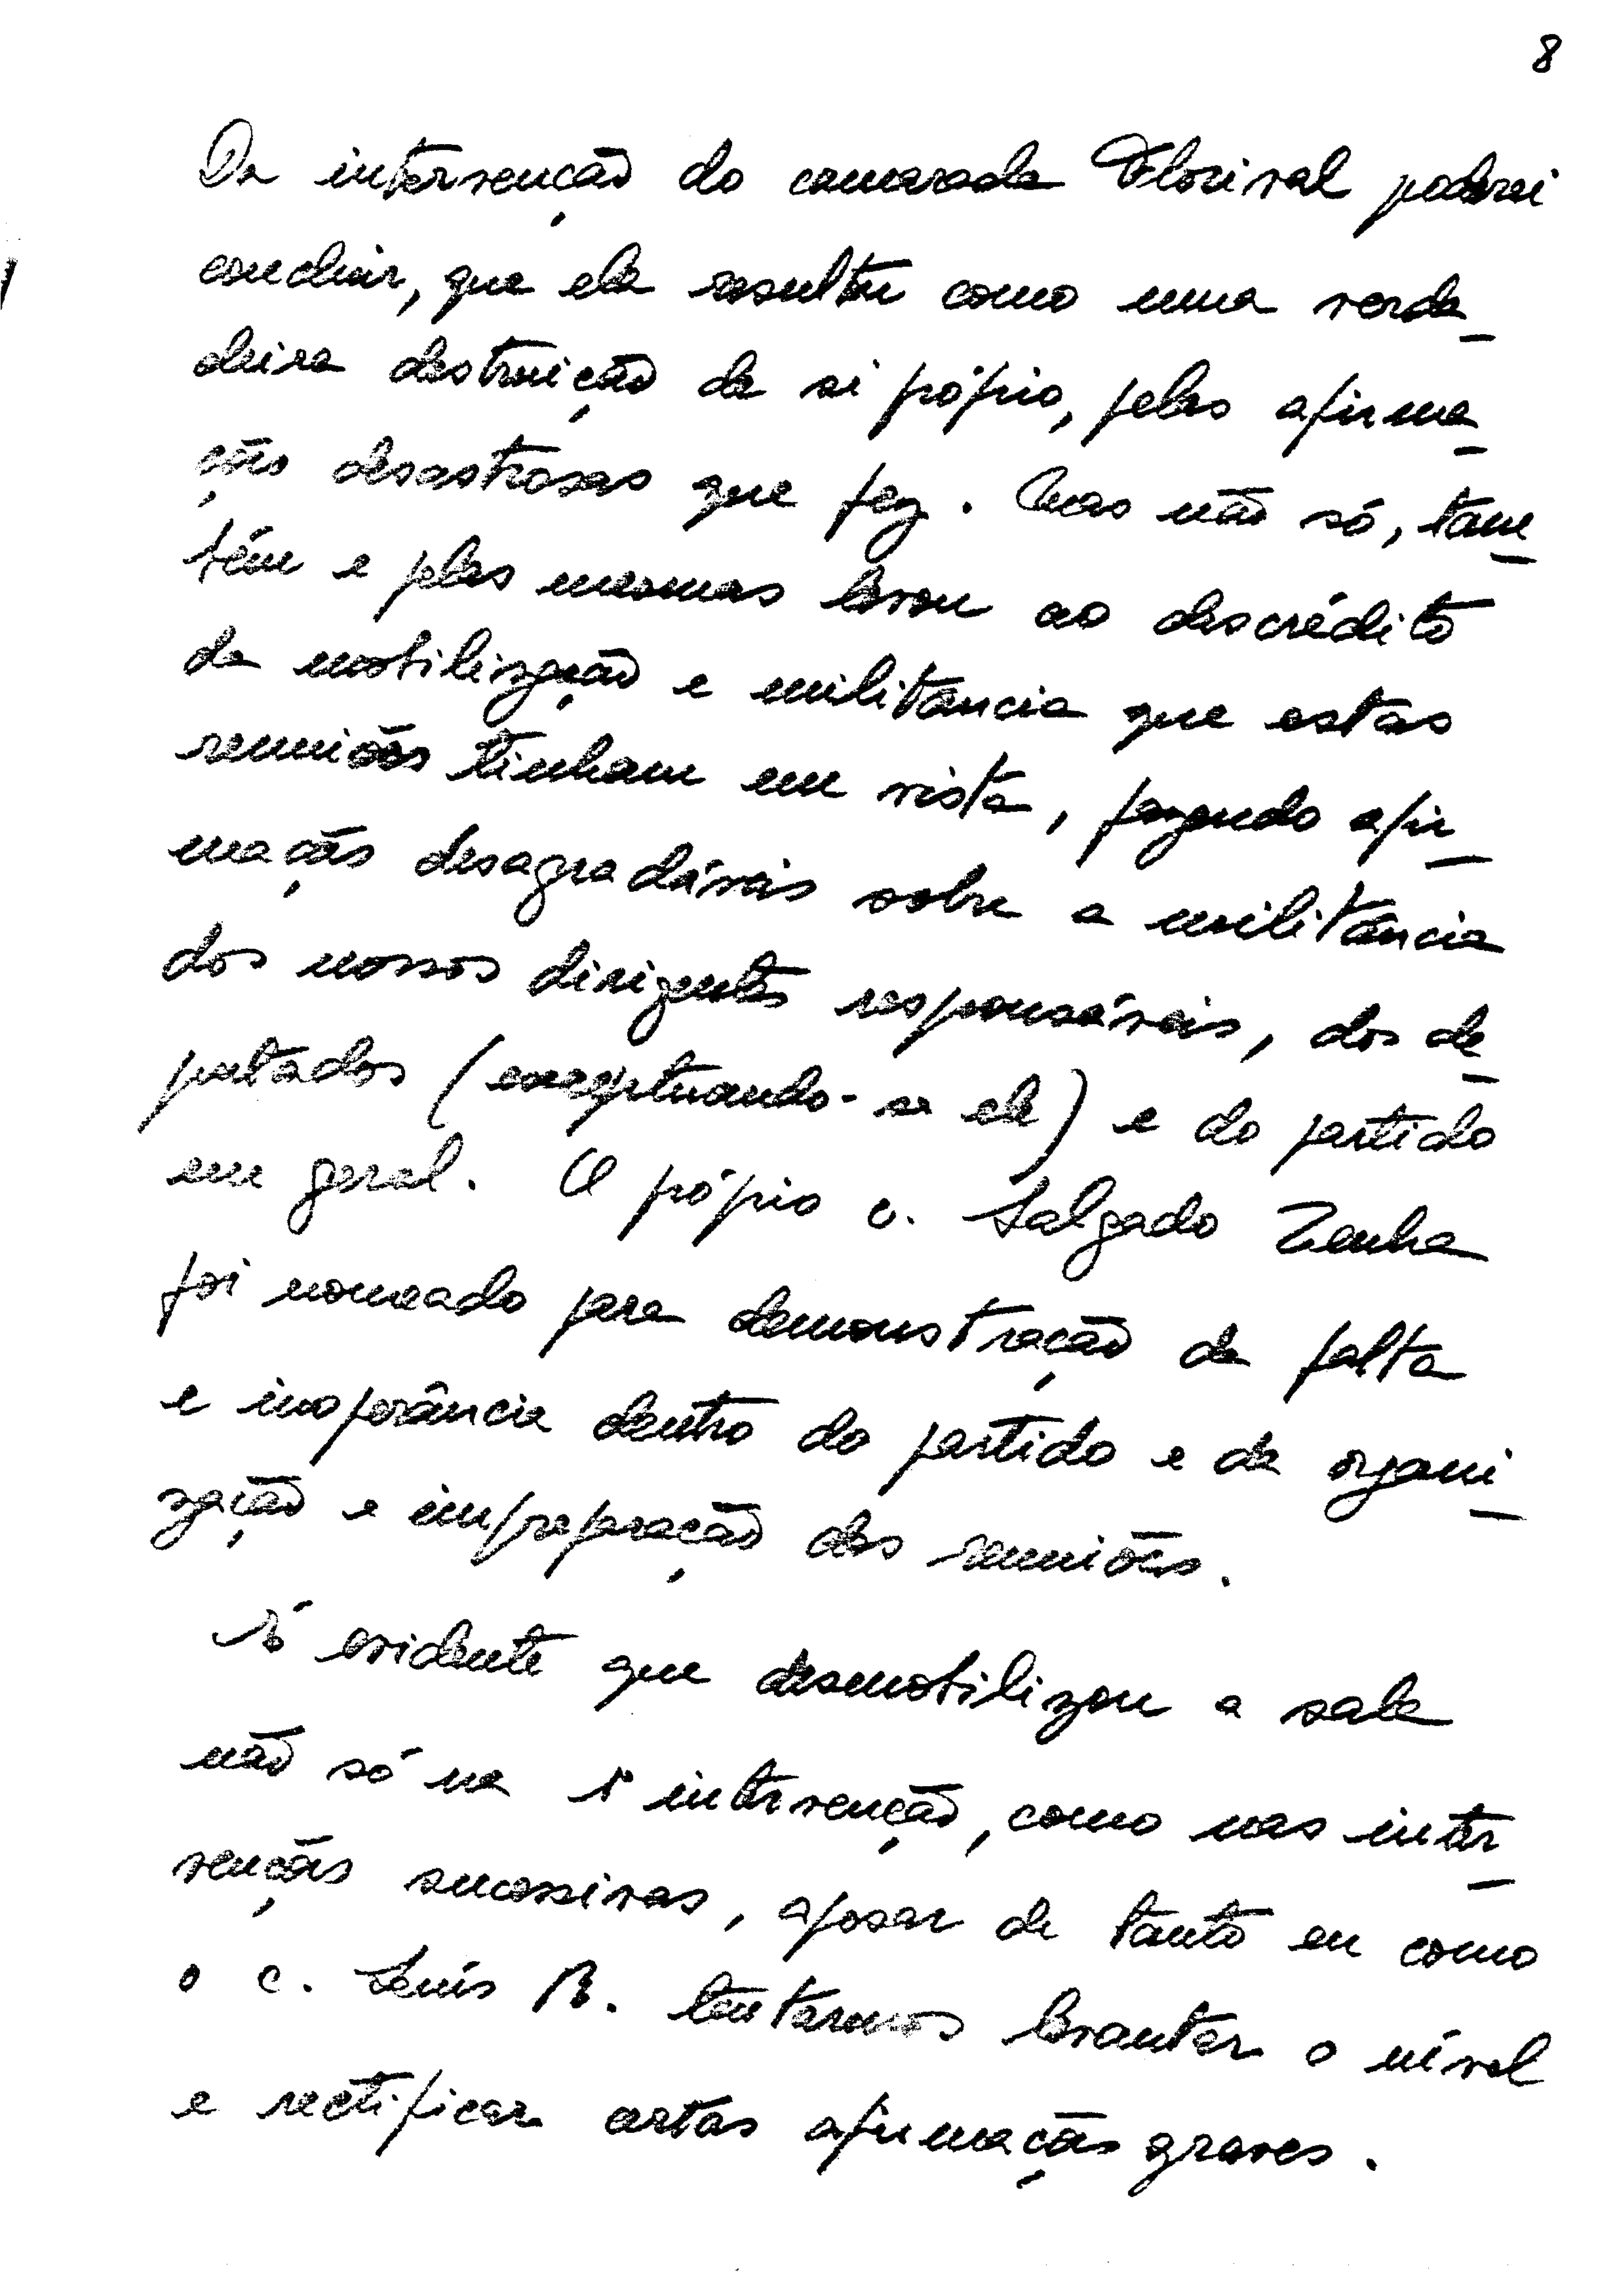 8
Da intervenção do camarada Florival poderei
concluir, que ela resultou como uma verda-
deira destruição de si própio, pelas afirma-
ções desastrosas que fez. Mas não só, tam-
bém e pelas mesmas levou ao descrédito
da mobilização e militância que estas
reuniões tinham em vista, fazendo afir-
mações desagradáveis sobre a militância
dos nossos dirigentes responsáveis, dos de-
putados (exceptuando-se ele) e do partido
em geral. O própio c. Salgado Zenha
foi nomeado para demonstração da falta
e inoperância dentro do partido e da organi-
zação e impreparação das reuniões.
É evidente que desmobilizou a sala
não só na 1ª intervenção, como nas inter-
venções sucessivas, apesar de tanto eu como
o c. Luís B. tentarmos levantar o nível
e rectificar certas afirmações graves.